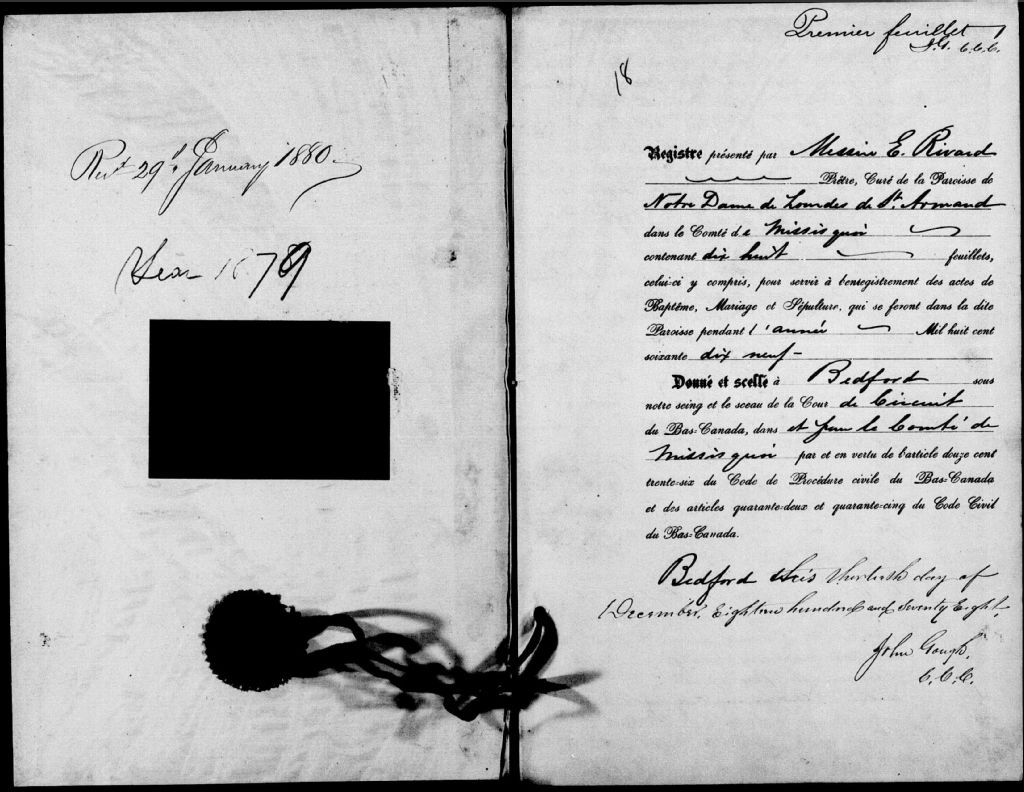 Rec'd 29th January 1880
Year 1879
Premier feuillet
J.G. C.C.C.
18
Registre présenté par Messire E. Rivard
Prêtre, Curé de la Paroisse de
Notre Dame de Lourdes de St. Armand
dans le Comté de Missisquoi
contenant dix huit feuillets,
celui-ci y compris, pour servir à l'enregistrement des actes de
Baptême, Mariage et Sépulture, qui se feront dans la dite
Paroisse pendant l'année Mil huit cent
soixante dix neuf-
Donné et scellé à Bedford sous
notre seing et le sceau de la Cour de Circuit
du Bas-Canada, dans et pour le Comté de
Missisquoi par et en vertu de l'article douze cent
trente-six du Code de Procédure civile du Bas-Canada
et des articles quarante-deux et quarante-cinq du Code Civil
du Bas-Canada.
Bedford this day of
December, Eighteen hundred and Seventy Eight.
John Gough.
C.C.C.